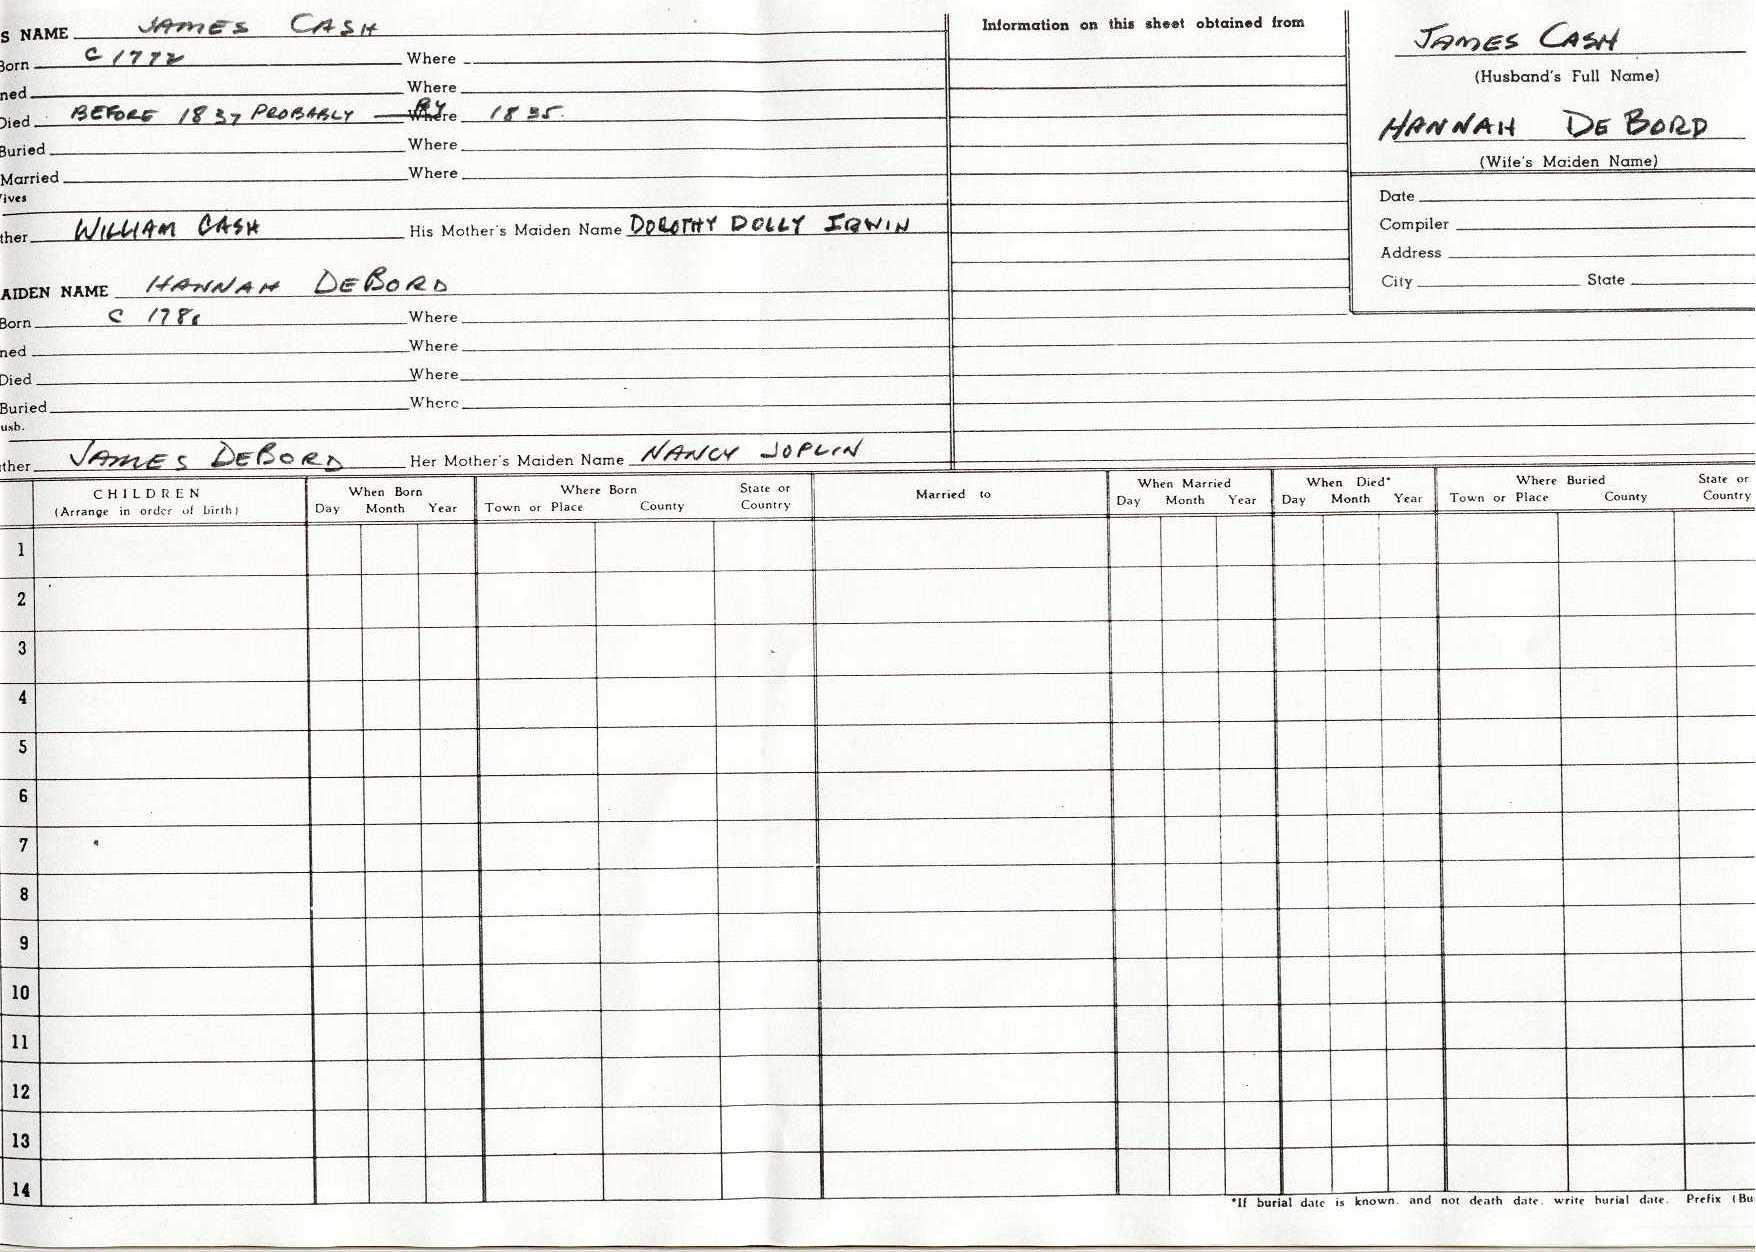 S NAME JAMES CASH
Born C 1772 Where
ned Where
Died BEFORE 1837 PROBABLY BY Where 1835.
Buried Where
Married Where
ives
ther WILLIAM CASH His Mother's Maiden Name DOROTHY DOLLY IRWIN
AIDEN NAME HANNAH DEBORD
Born C Where
ned Where
Died Where
Buried Where
usb.
ther JAMES DEBORD Her Mother's Maiden Name NANCY JOPLIN
Information on this sheet obtained from
JAMES CASH
(Husband's Full Name)
HANNAH DE BORD
(Wife's Maiden Name)
Date
Compiler
Address
City State
CHILDREN
(Arrange in order of birth)
When Born
Day Month Year
Where Born
Town or Place County
State or
Country
Married to
When Married
Day Month Year
When Died*
Day Month Year
Where Buried
Town or Place County
State or
Country
1
2
3
4
5
6
7
8
9
10
11
12
13
14
*If burial date is known. and not death date. write burial date. Prefix (Bu